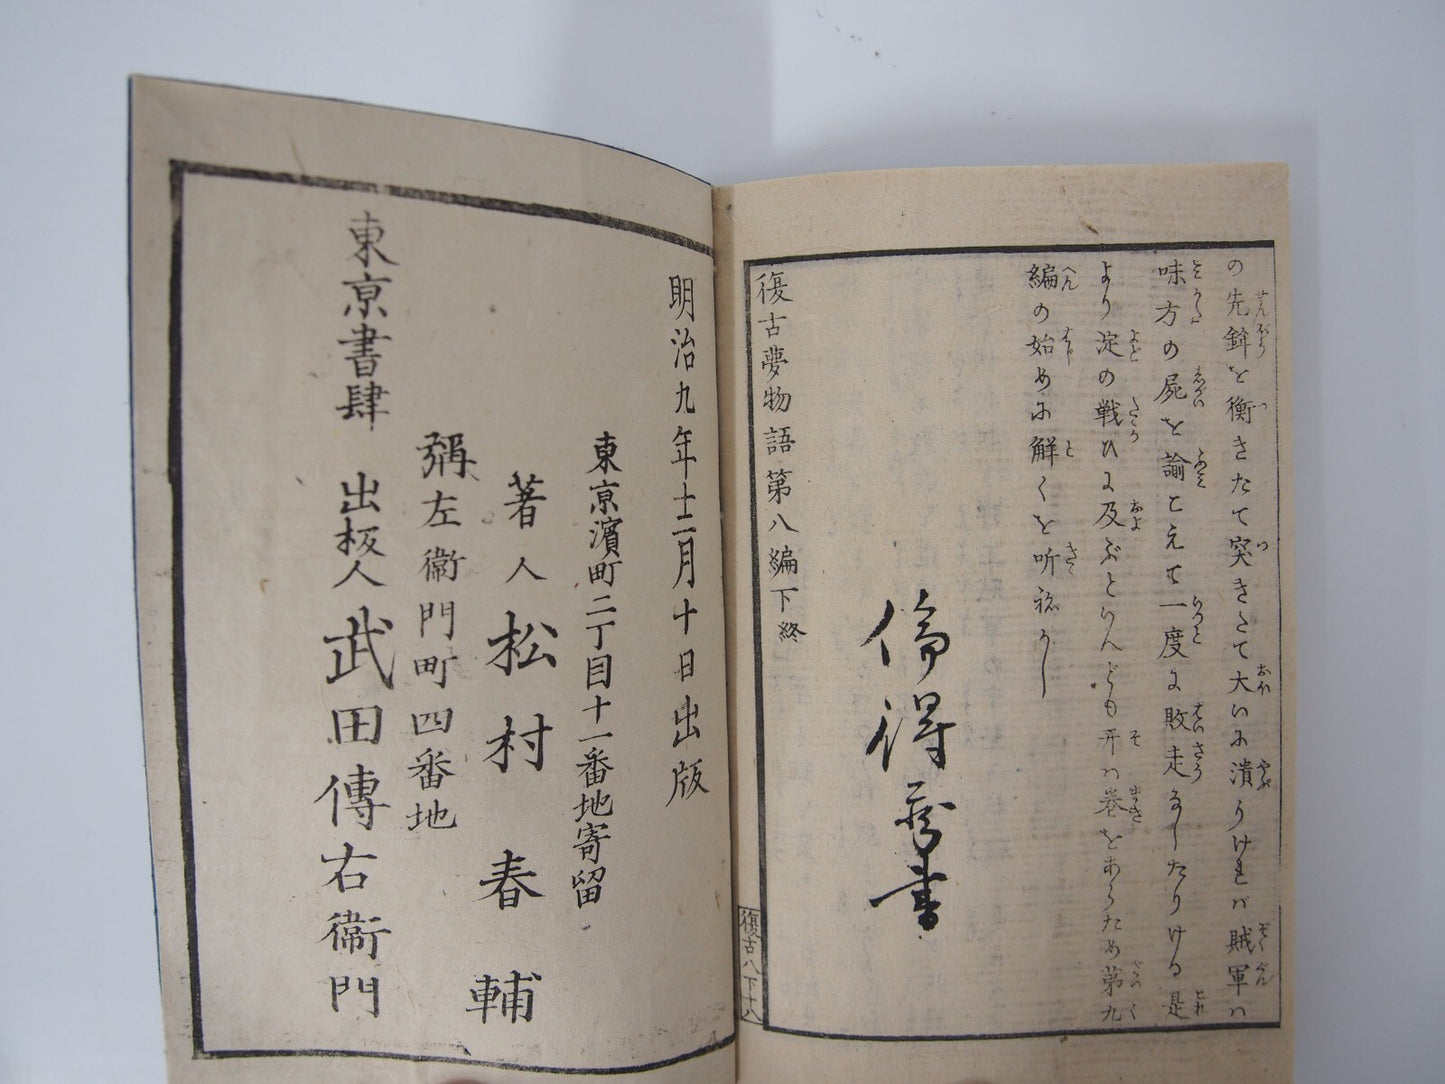 の先鋒を衝きたて突きたて大いに潰りけれバ賊軍ハ
味方の屍を踰こえて一度に敗走なしたりける是
より淀の戦ひに及ぶといへども开ハ巻をあらため第九
編の始めに解くを听ねかし
復古夢物語第八編下終
復古八下十八
明治九年十二月十日出版
東京濱町二丁目十一番地寄留
著人 松村春輔
彌左衞門町四番地
東京書肆 出板人 武田傳右衞門